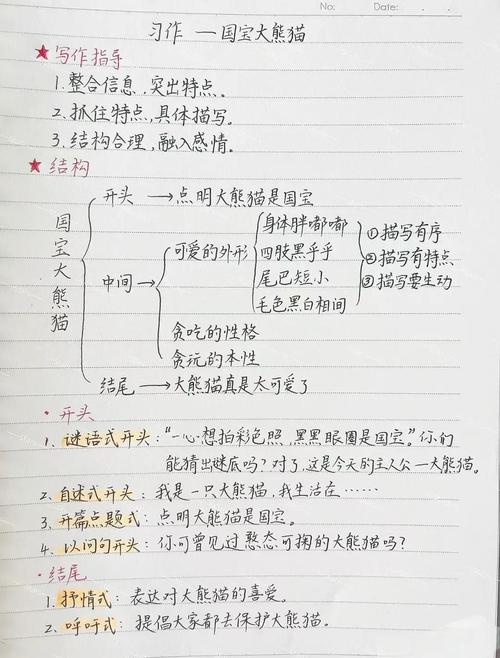 No:
Date:
习作 —国宝大熊猫
★写作指导
1.整合信息,突出特点。
2.抓住特点,具体描写。
3.结构合理,融入感情。
★结构
国宝大熊猫
开头 →点明大熊猫是国宝
中间→
可爱的外形
身体胖嘟嘟
四肢黑乎乎
尾巴短小
毛色黑白相间
①描写有序
②描写有特点
③描写要生动
贪吃的性格
贪玩的本性
结尾→大熊猫真是太可爱了
·开头
1、谜语式开头:“一心想拍彩色照,黑黑眼圈是国宝。”你们
能猜出谜底吗?对了,这是今天的主人公—大熊猫。
2.自述式开头:我是一只大熊猫,我生活在……
3.开篇点题式:点明大熊猫是国宝。
4.以问句开头:你可曾见过憨态可掬的大熊猫吗?
·结尾
1.抒情式:表达对大熊猫的喜爱。
2.呼吁式:提倡大家都去保护大熊猫。